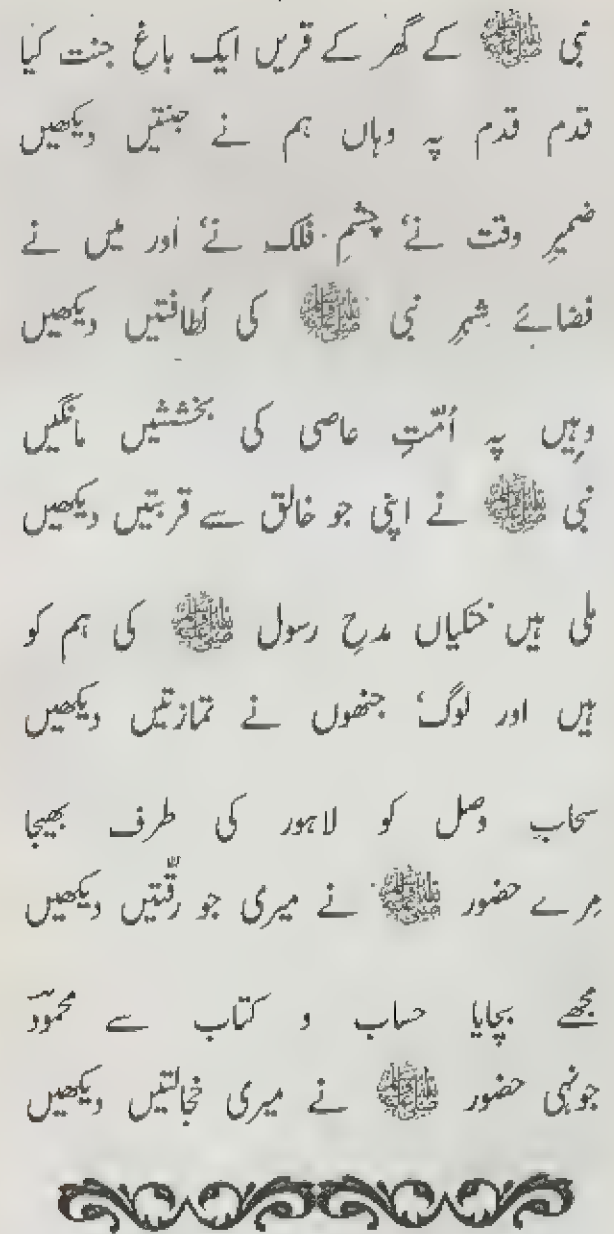 نبی ﷺ کے گھر کے قریں ایک باغِ جنت کیا
قدم قدم پہ وہاں ہم نے جنتیں دیکھیں
ضمیرِ وقت نے، چشمِ فلک نے، اور میں نے
فضائے شہرِ نبی ﷺ کی لَطافتیں دیکھیں
وہیں پہ اُمّتِ عاصی کی بخششیں مانگیں
نبی ﷺ نے اپنی جو خالق سے قربتیں دیکھیں
ملی ہیں خنکیاں مدحِ رسول ﷺ کی ہم کو
ہیں اور لوگ، جنھوں نے تمازتیں دیکھیں
سحابِ وصل کو لاہور کی طرف بھیجا
مرے حضور ﷺ نے میری جو رقّتیں دیکھیں
مجھے بچایا حساب و کتاب سے محمودؔ
جونہی حضور ﷺ نے میری خجالتیں دیکھیں